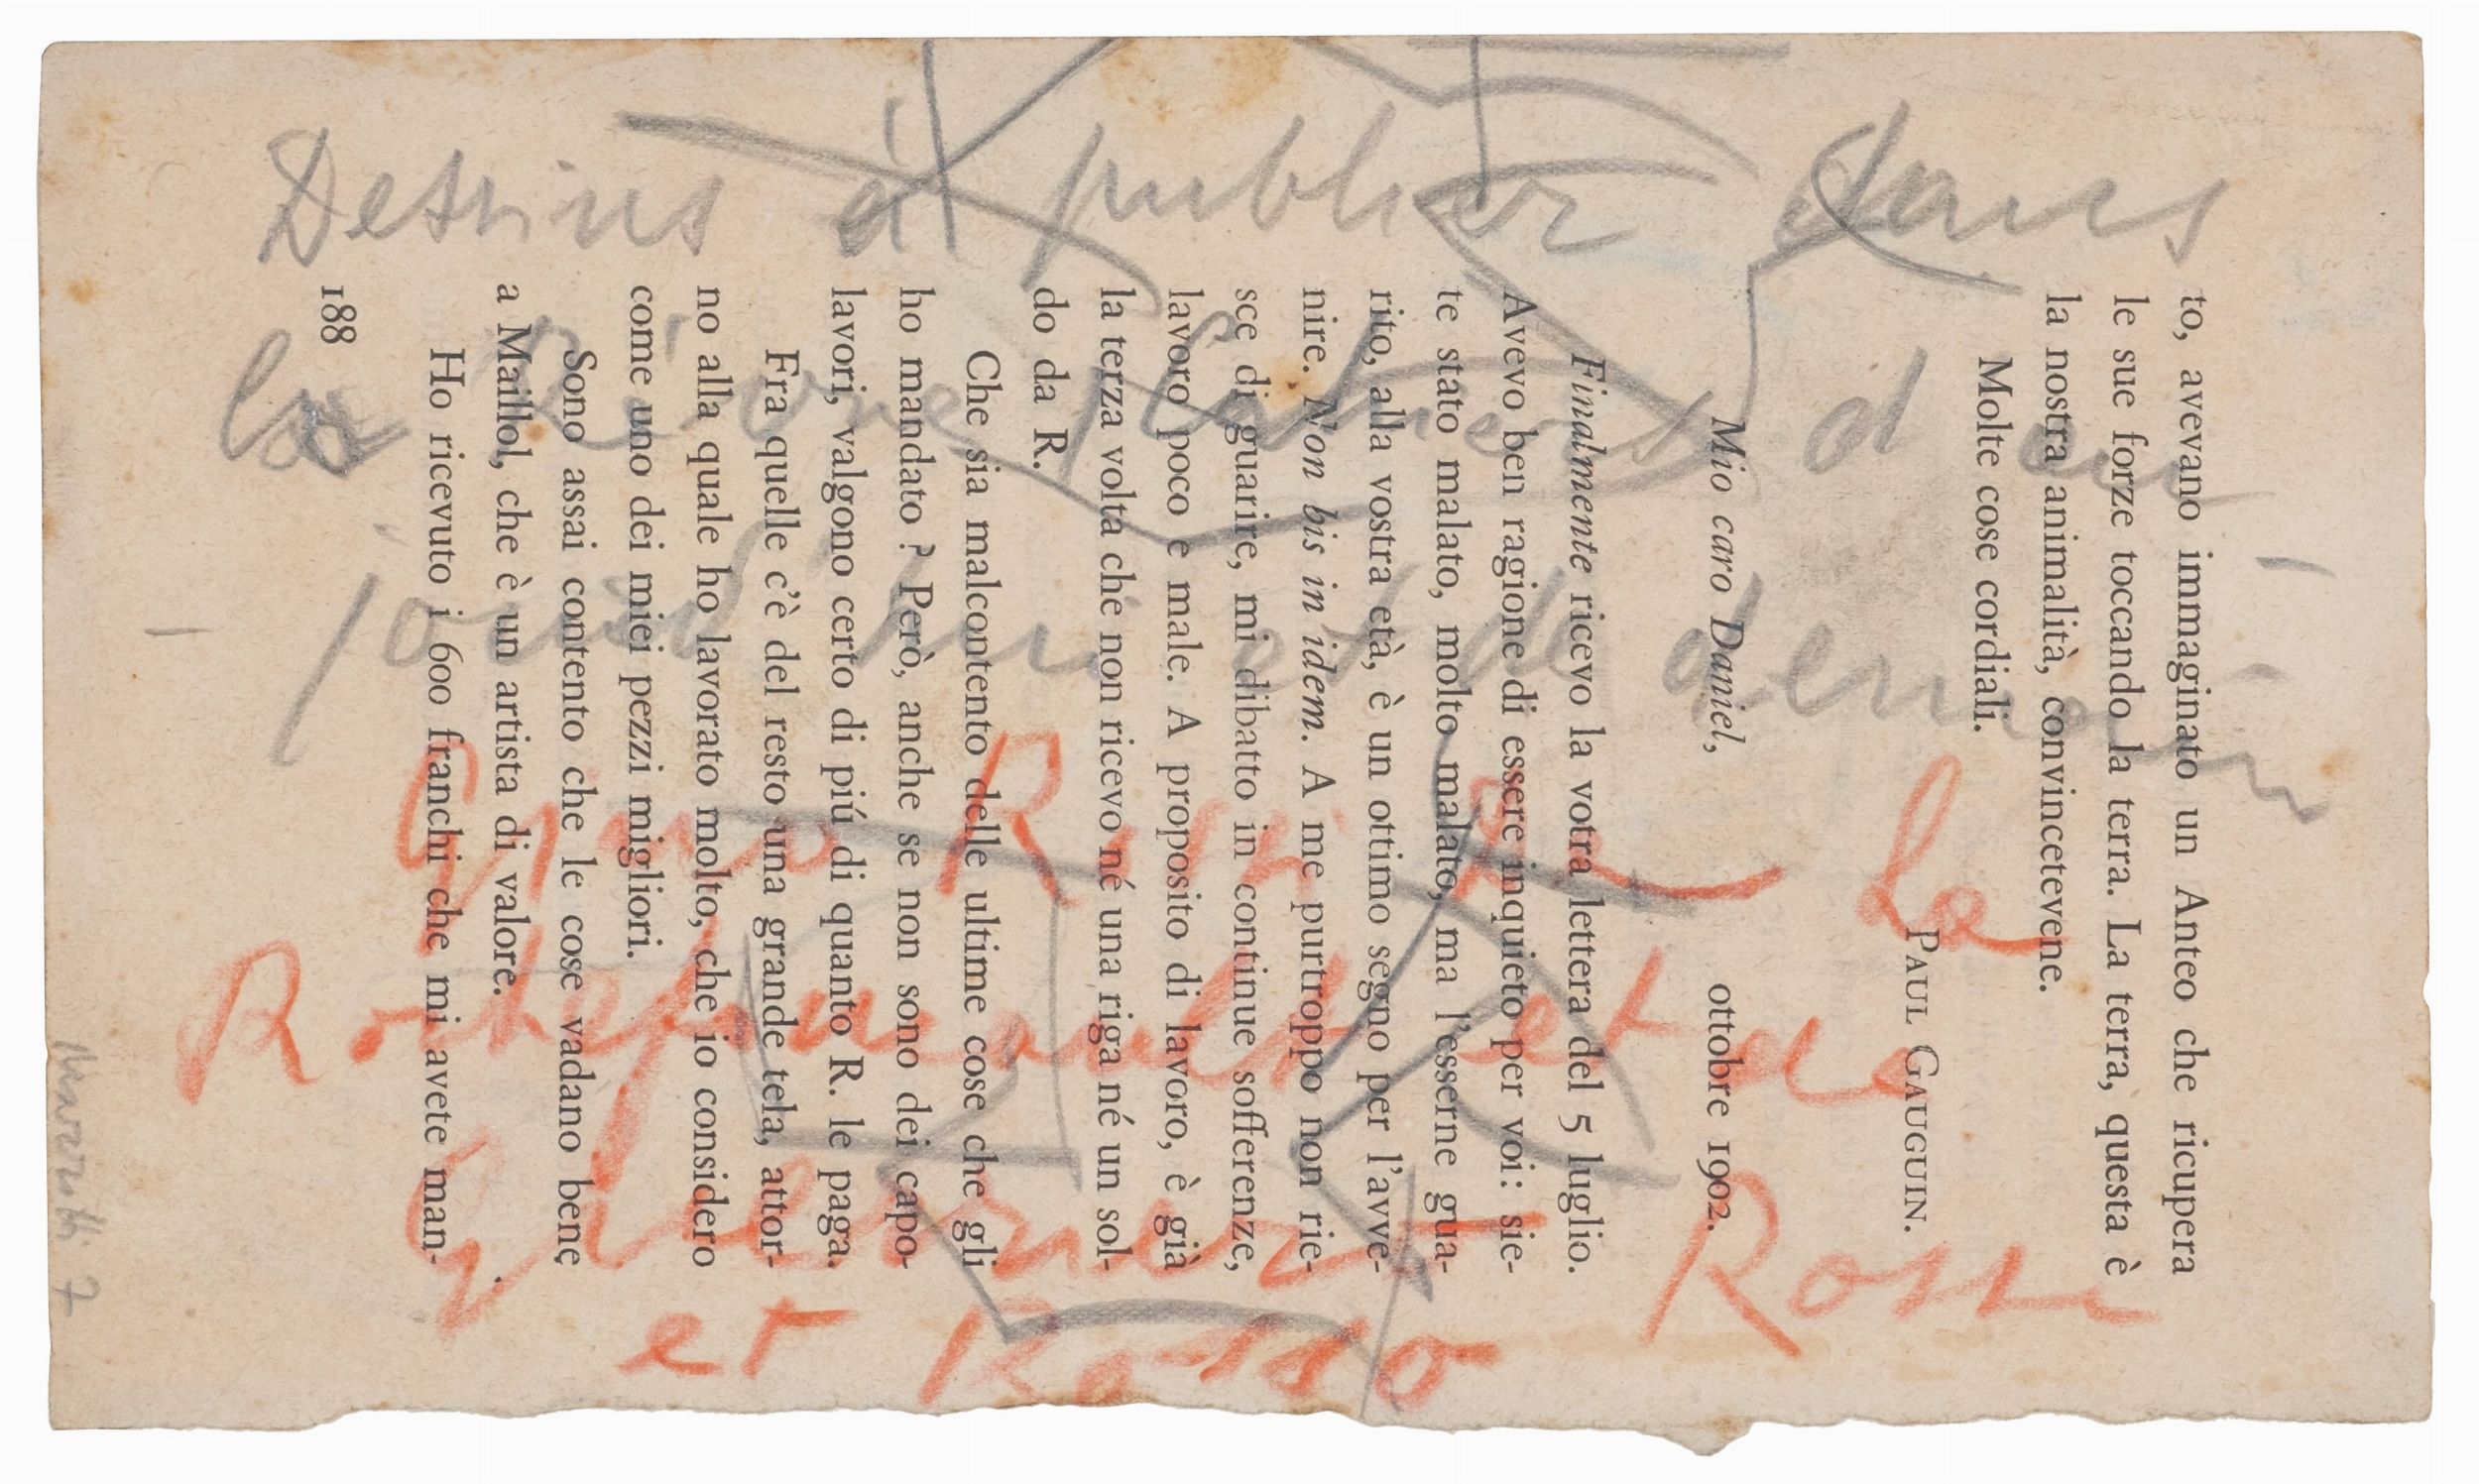 to, avevano immaginato un Anteo che ricupera
le sue forze toccando la terra. La terra, questa è
la nostra animalità, convincetevene.
Molte cose cordiali.
PAUL GAUGUIN.
Mio caro Daniel,
ottobre 1902.
Finalmente ricevo la votra lettera del 5 luglio.
Avevo ben ragione di essere inquieto per voi: sie-
te stato malato, molto malato, ma l'esserne gua-
rito, alla vostra età, è un ottimo segno per l'avve-
nire. Non bis in idem. A me purtroppo non rie-
sce di guarire, mi dibatto in continue sofferenze,
lavoro poco e male. A proposito di lavoro, è già
la terza volta che non ricevo né una riga né un sol-
do da R.
Che sia malcontento delle ultime cose che gli
ho mandato? Però, anche se non sono dei capo-
lavori, valgono certo di piú di quanto R. le paga.
Fra quelle c'è del resto una grande tela, attor-
no alla quale ho lavorato molto, che io considero
come uno dei miei pezzi migliori.
Sono assai contento che le cose vadano bene
a Maillol, che è un artista di valore.
Ho ricevuto i 600 franchi che mi avete man-
188
Dessins à publier dans
les d'au
jourd'hui et de demain
La
et de
Rosse
et Rosso